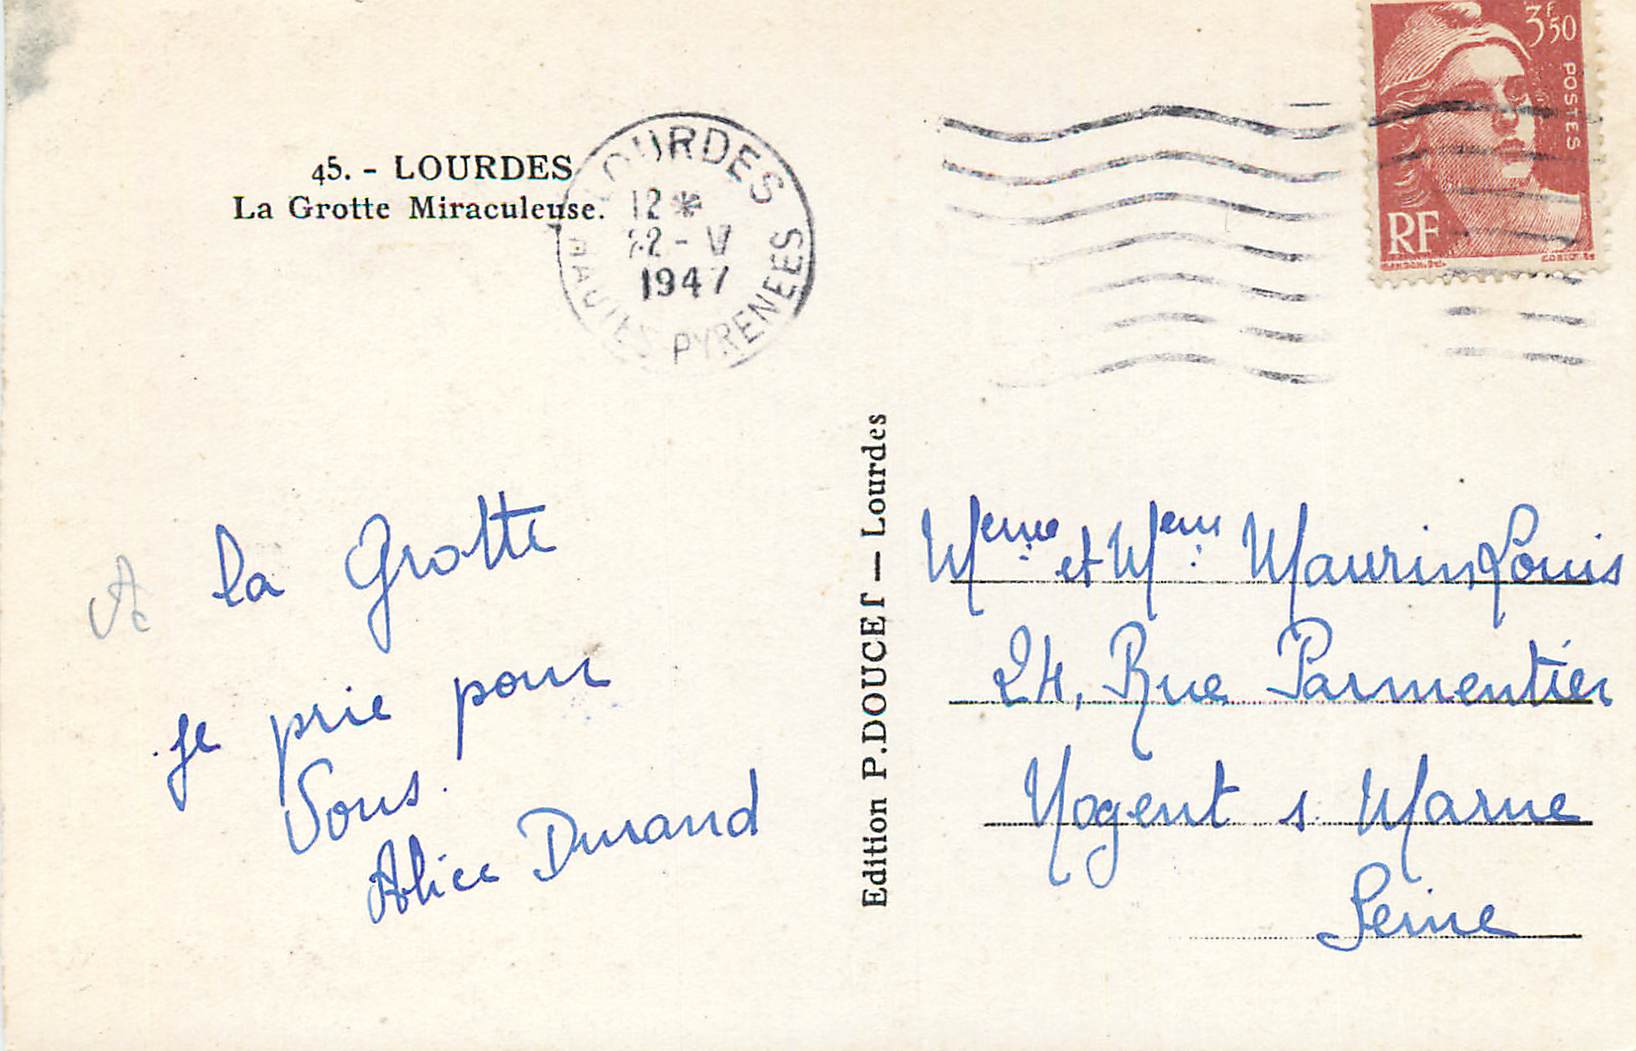 45. - LOURDES
La Grotte Miraculeuse.
LOURDES
12 *
22 - VI
1947
HAUTES PYRENEES
3F50
POSTES
RF
A la Grotte
je prie pour
Vous.
Alice Durand
Edition P. DOUCET — Lourdes
et Maurin Louis
24, Rue Parmentier
Nogent s Marne
Seine